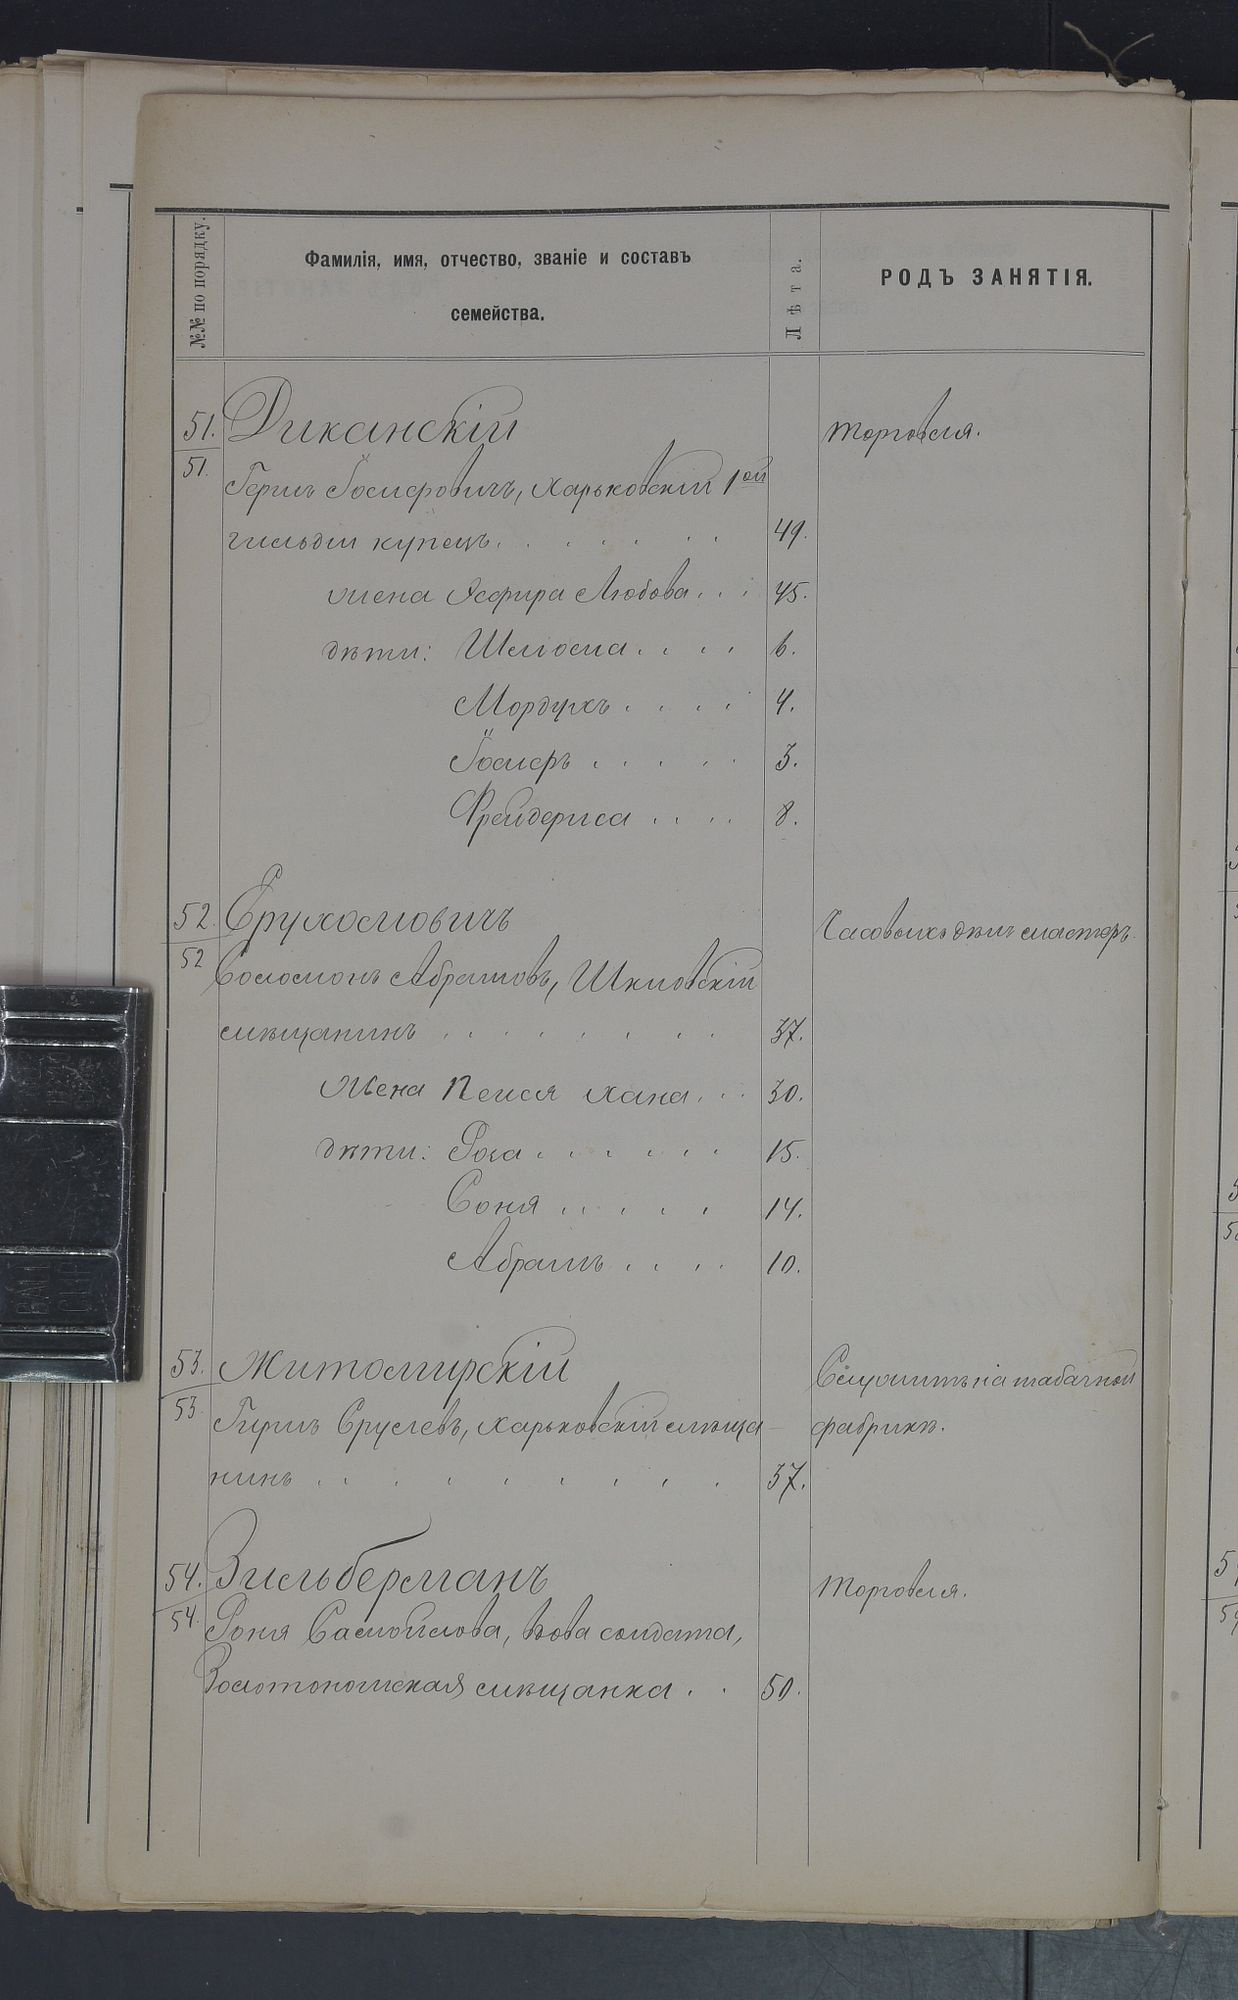 №№ по порядку.
Фамилія, имя, отчество, званіе и составъ
семейства.
Лѣта.
РОДЪ ЗАНЯТІЯ.
51. Диканскій торговля.
51. Герш Іосифовичъ, Харьковскій 1ой
гильдіи купецъ 49.
жена Эсфира Любова 45.
дѣти: Шлиома 6.
Мордухъ 4.
Іосифъ 3.
Фрейдериса 8.
52. Ерухомовичъ Часовыхъ дѣлъ мастеръ.
52 Соломонъ Абрамовъ, Шкловскій
мѣщанинъ 37.
жена Пеися Хана 30.
дѣти: Роза 15.
Соня 14.
Абрамъ 10.
53. Житомирскій Служитъ на табачной
53. Гиршъ Сруслевъ, харьковскій мѣща- фабрикѣ.
нинъ 37.
54. Зильберманъ торговля.
54. Роня Самойлова, вдова солдата,
Золотоношская мѣщанка 50.